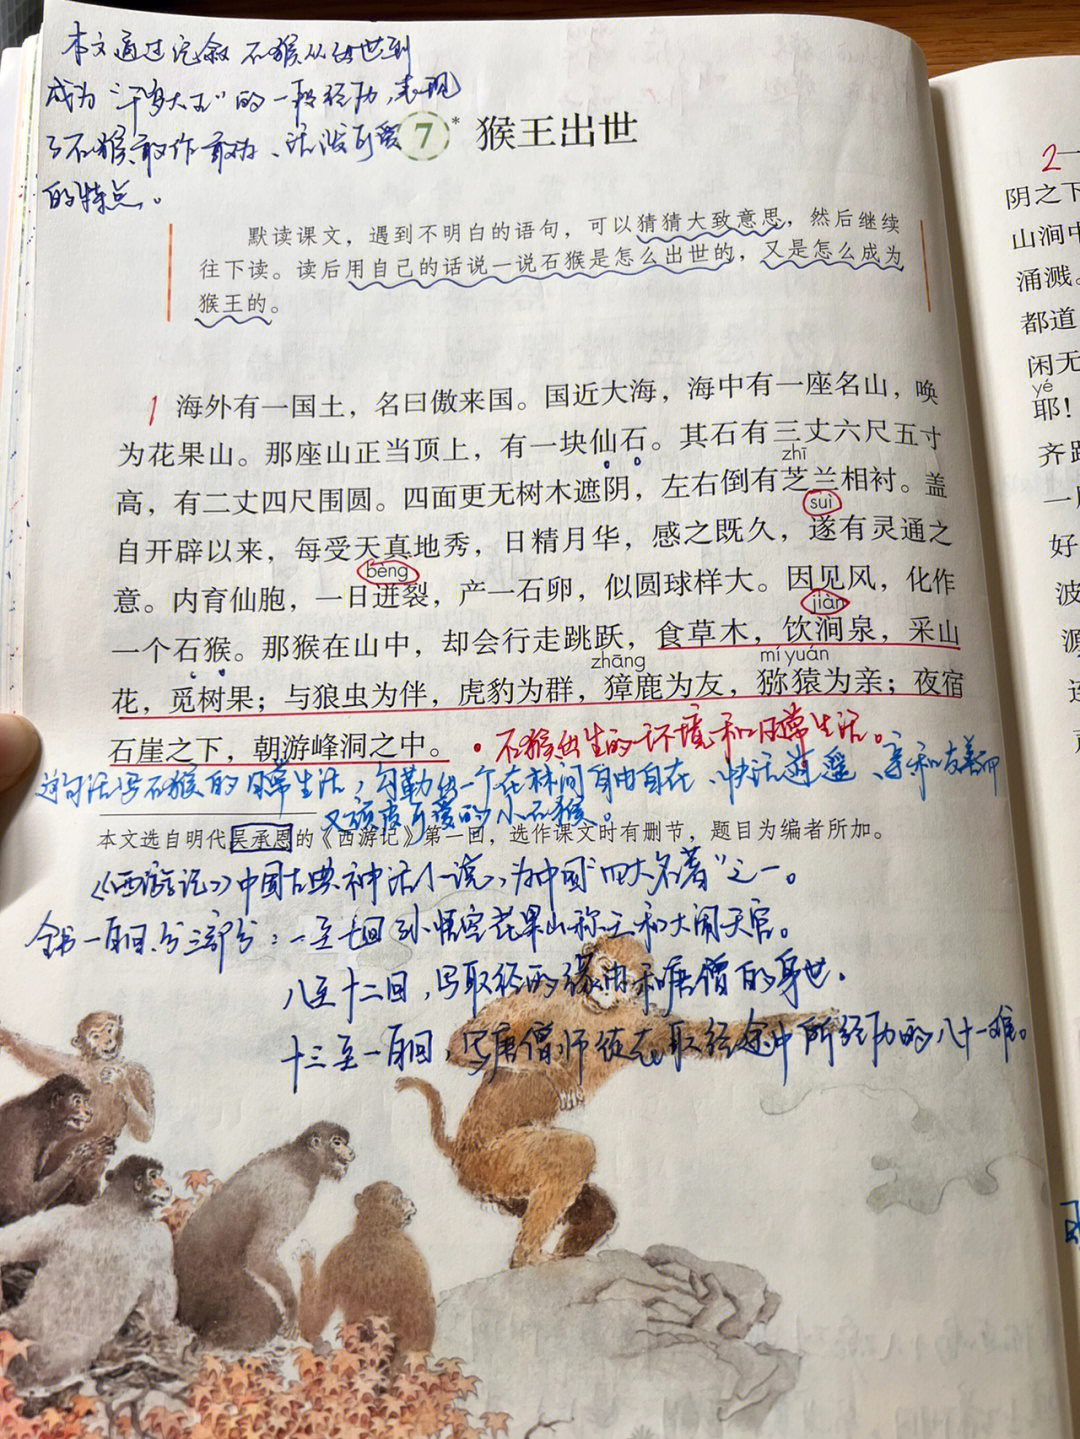 本文通过记叙石猴从出世到
成为“千岁大王”的一段经历，表现
了石猴敢作敢为、活泼可爱
的特点。
7* 猴王出世
默读课文，遇到不明白的语句，可以猜猜大致意思，然后继续
往下读。读后用自己的话说一说石猴是怎么出世的，又是怎么成为
猴王的。
1 海外有一国土，名曰傲来国。国近大海，海中有一座名山，唤
为花果山。那座山正当顶上，有一块仙石。其石有三丈六尺五寸
zhī
高，有二丈四尺围圆。四面更无树木遮阴，左右倒有芝兰相衬。盖
suì
自开辟以来，每受天真地秀，日精月华，感之既久，遂有灵通之
bèng
意。内育仙胞，一日迸裂，产一石卵，似圆球样大。因见风，化作
jiàn
一个石猴。那猴在山中，却会行走跳跃，食草木，饮涧泉，采山
zhāng mí yuán
花，觅树果；与狼虫为伴，虎豹为群，獐鹿为友，猕猿为亲；夜宿
石崖之下，朝游峰洞之中。
·石猴出生的环境和日常生活。
这句话写石猴的日常生活，勾勒出一个在林间自由自在、快活逍遥、亲和友善而
又顽皮可爱的小石猴。
本文选自明代吴承恩的《西游记》第一回，选作课文时有删节，题目为编者所加。
《西游记》中国古典神话小说，为中国“四大名著”之一。
全书一百回，分三部分：一至七回孙悟空花果山称王和大闹天宫。
八至十二回，写取经的缘由和唐僧的身世。
十三至一百回，写唐僧师徒去取经途中所经历的八十一难。
2 一
阴之下
山涧中
涌溅。
都道
闲无
yé
耶！
齐跑
好
波
源